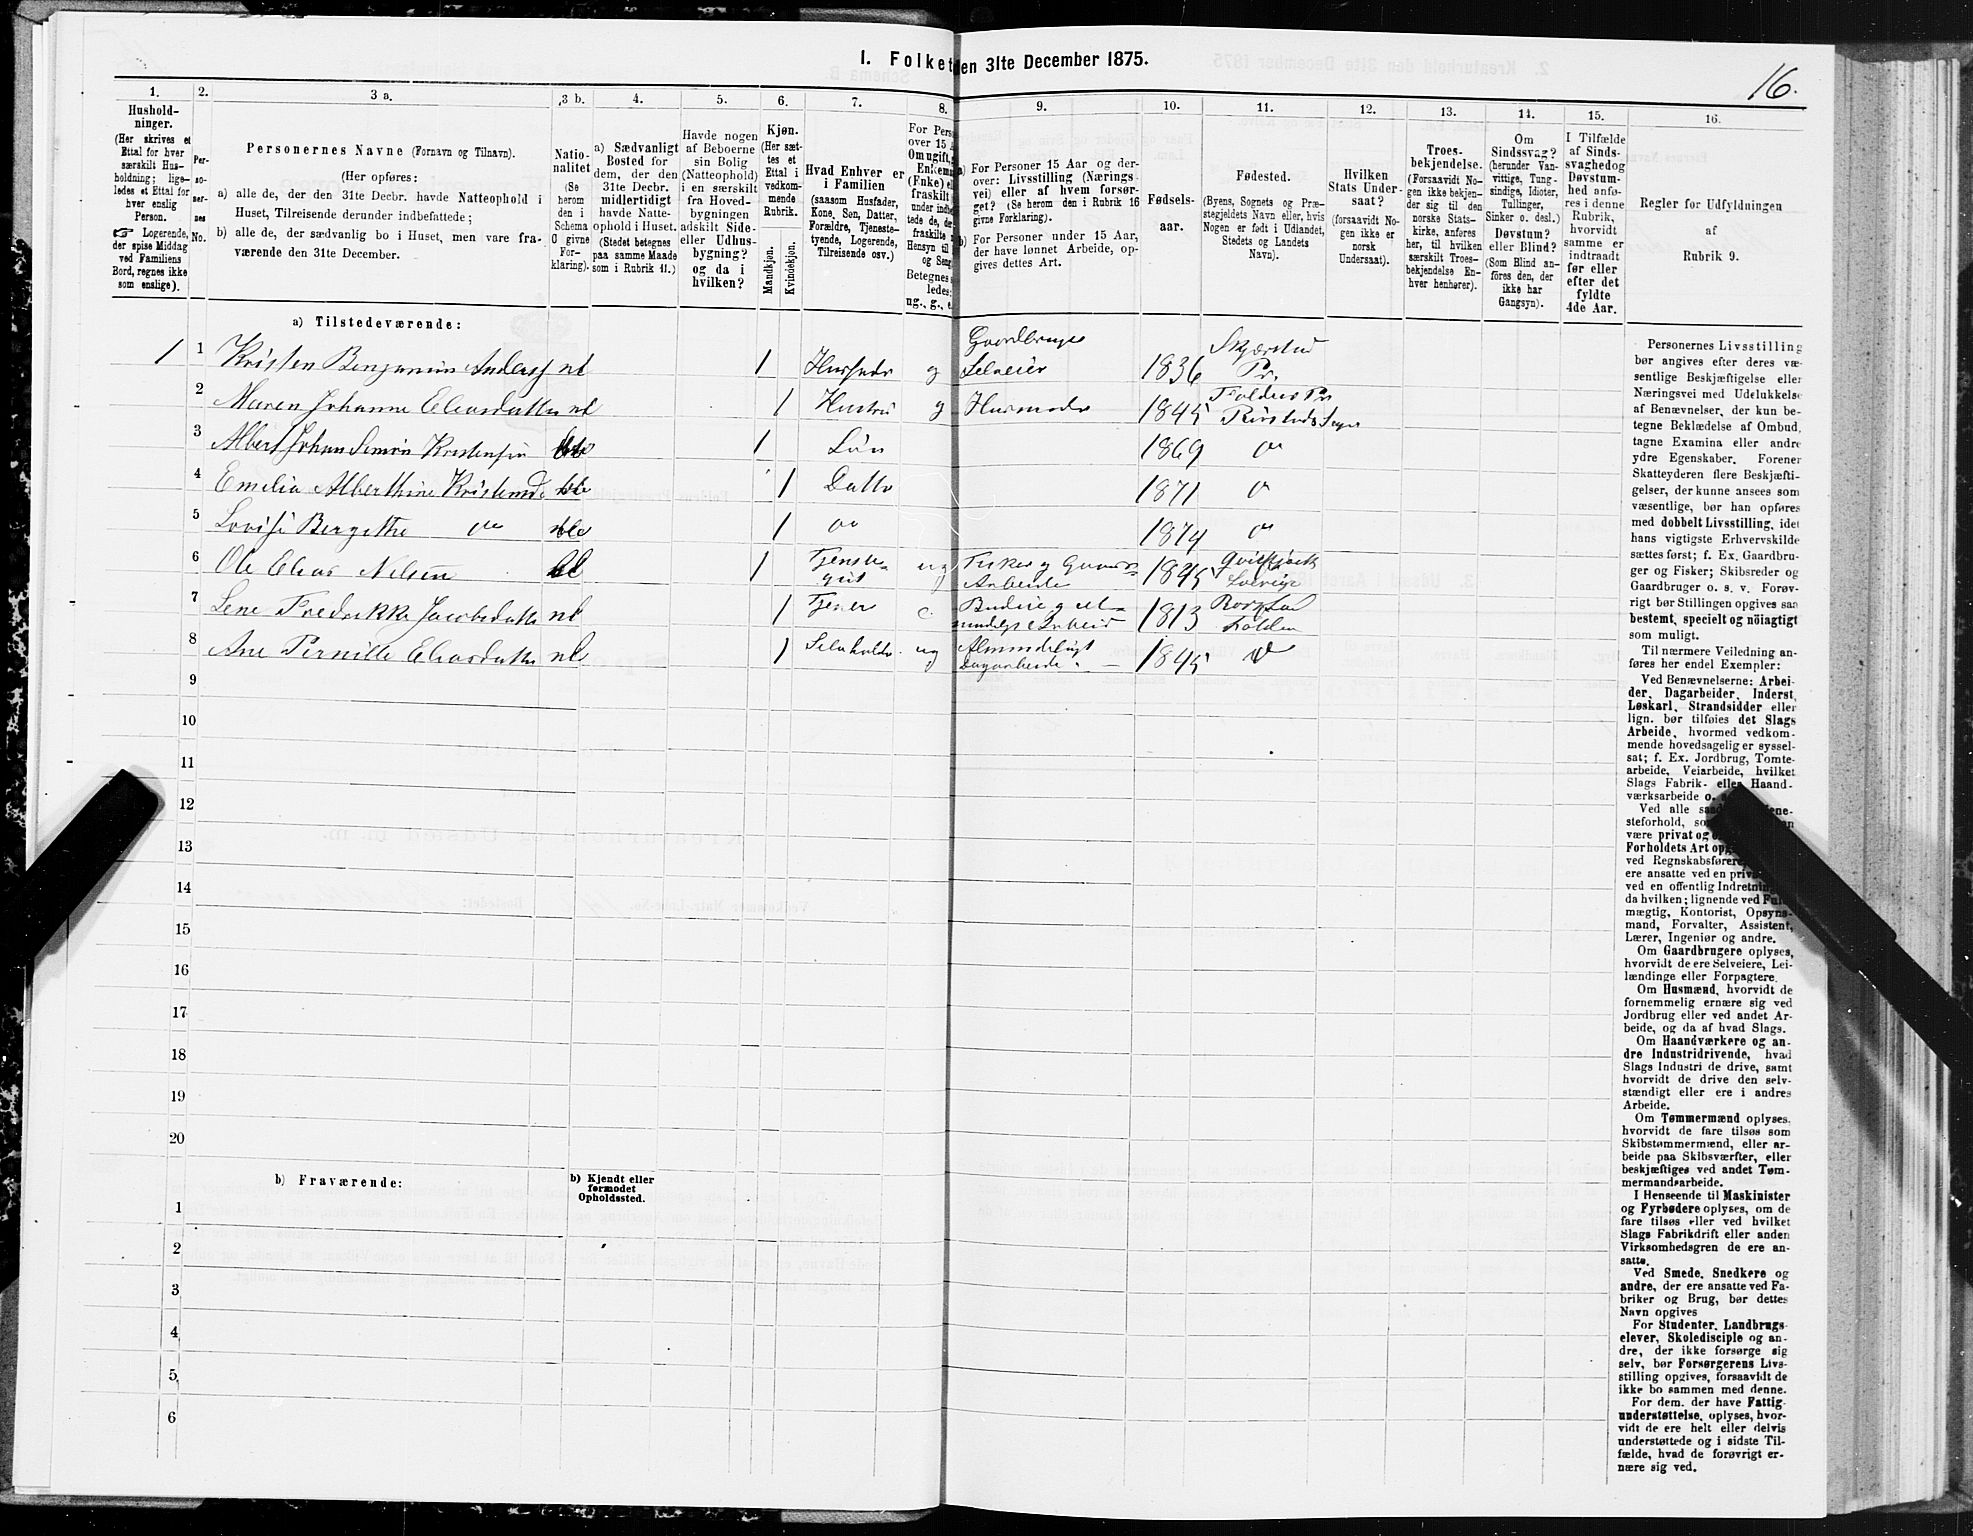 1. Folket
en 31te December 1875.
16.
1. 2. 3 a. 3 b. 4. 5. 6. 7. 8. 9. 10. 11. 12. 13. 14. 15. 16.
Hushold-
ninger.
(Her skrives et
Ettal for hver
særskilt Hus-
holdning; lige-
ledes et Ettal for
hver enslig
Person.
☞ Logerende,
der spise Middag
ved Familiens
Bord, regnes ikke
som enslige).
Per-
so-
ner-
nes
No.
Personernes Navne (Fornavn og Tilnavn).
(Her opføres:
a) alle de, der den 31te Decbr. havde Natteophold i
Huset, Tilreisende derunder indbefattede;
b) alle de, der sædvanlig bo i Huset, men vare fra-
værende den 31te December.
Natio-
nalitet
(Se
herom
den i
Schema
O givne
For-
klaring).
a) Sædvanligt
Bosted for
dem, der den
31te Decbr.
midlertidigt
havde Natte-
ophold i Huset.
(Stedet betegnes
paa samme Maade
som i Rubrik 11.)
Havde nogen
af Beboerne
sin Bolig
(Natteophold)
i en særskilt
fra Hoved-
bygningen
adskilt Side-
eller Udhus-
bygning?
og da i
hvilken?
Kjøn.
(Her sæt-
tes et
Ettal i
vedkom-
mende
Rubrik.
Mandkjøn.
Kvindekjøn.
Hvad Enhver er
i Familien
(saasom Husfader,
Kone, Søn, Datter,
Forældre, Tjeneste-
tyende, Logerende,
Tilreisende osv.)
For Pers
over 15 A
Om ugift,
Enkem
(Enke) el
fraskilt
under indb
tede de, d
fraskilte
Hensyn til
og Seng
Betegnes
ledes:
ug., g., e.
a) For Personer 15 Aar og der-
over: Livsstilling (Nærings-
vei) eller af hvem forsør-
get? (Se herom den i Rubrik 16
givne Forklaring).
b) For Personer under 15 Aar,
der have lønnet Arbeide, op-
gives dettes Art.
Fødsels-
aar.
Fødested.
(Byens, Sognets og Præ-
stegjeldets Navn eller, hvis
Nogen er født i Udlandet,
Stedets og Landets
Navn).
Hvilken
Stats Under-
saat?
(forsaavidt No-
gen ikke er
norsk
Undersaat).
Troes-
bekjendelse.
(Forsaavidt No-
gen ikke bekjen-
der sig til den
norske Stats-
kirke, anføres
her, til hvilken
særskilt Troes-
bekjendelse En-
hver henhører).
Om
Sindssvag?
(herunder Van-
vittige, Tung-
sindige, Idioter,
Tullinger,
Sinker o. desl.)
Døvstum?
eller Blind?
(Som Blind an-
føres den, der
ikke har
Gangsyn).
I Tilfælde
af Sinds-
svaghed og
Døvstum-
hed anfø-
res i denne
Rubrik,
hvorvidt
samme er
indtraadt
før eller
efter det
fyldte
4de Aar.
Regler for Udfyldningen
af
Rubrik 9.
a) Tilstedeværende:
1 1 Kristen Benjamin Andersf nl 1 Husfader g Gaardbruger Selveier 1836 Skjerstad Pr.
2 Maren Johanne Eliasdatter nl 1 Hustru g Husmoder 1845 Foldens Pr Rørstads Sogn
3 Albert Johan Simon Kristensen 1 Søn 1869 do
4 Emelia Alberthine Kristensd 1 Datter 1871 do
5 Lovise Bergithe do 1 do 1874 do
6 Ole Elias Nilsen 1 Tjeneste-gut ug Fisker og Gaards-Arbeide 1845
7 Lene Fredrikke Jacobsdatter nl 1 Tjener e. 1813 Folden
8 Ane Pernille Eliasdatter nl 1 ug Almindeligt Dagarbeide 1845 do
9
10
11
12
13
14
15
16
17
18
19
20
b) Fraværende:
b) Kjendt eller
formodet
Opholdssted.
1
2
3
4
5
6
Personernes Livsstilling
bør angives efter deres væ-
sentlige Beskjæftigelse eller
Næringsvei med Udelukkelse
af Benævnelser, der kun be-
tegne Beklædelse af Ombud,
tagne Examina eller andre
ydre Egenskaber. Forener
Skatteyderen flere Beskjæfti-
gelser, der kunne ansees som
væsentlige, bør han opføres
med dobbelt Livsstilling, idet
hans vigtigste Erhvervskilde
sættes først; f. Ex. Gaardbru-
ger og Fisker; Skibsreder og
Gaardbruger o. s. v. Forøv-
rigt bør Stillingen opgives saa
bestemt, specielt og nöiagtigt
som muligt.
Til nærmere Veiledning an-
føres her endel Exempler:
Ved Benævnelserne: Arbei-
der, Dagarbeider, Inderst,
Løskarl, Strandsidder eller
lign. bør tilføies det Slags
Arbeide, hvormed vedkom-
mende hovedsagelig er syssel-
sat; f. Ex. Jordbrug, Tomte-
arbeide, Veiarbeide, hvilket
Slags Fabrik- eller Haand-
værksarbeide o.
Ved alle
steforhold,
være privat og
Forholdets Art
ved Regnskabsfører
ere ansatte ved en
ved en offentlig Indretning
da hvilken; lignende ved
mægtig, Kontorist, Opsyns-
mand, Forvalter, Assistent,
Lærer, Ingeniør og andre.
Om Gaardbrugere oplyses,
hvorvidt de ere Selveiere, Lei-
lændinge eller Forpagtere.
Om Husmænd, hvorvidt de
fornemmelig ernære sig ved
Jordbrug eller ved andet Ar-
beide, og da af hvad Slags.
Om Haandværkere og an-
dre Industridrivende, hvad
Slags Industri de drive, samt
hvorvidt de drive den selv-
stændigt eller ere i andres
Arbeide.
Om Tømmermænd oplyses,
hvorvidt de fare tilsøs som
Skibstømmermænd, eller ar-
beide paa Skibsværfter, eller
beskjæftiges ved andet Tøm-
mermandsarbeide.
I Henseende til Maskinister
og Fyrbødere oplyses, om de
fare tilsøs eller ved hvilket
Slags Fabrikdrift eller anden
Virksomhedsgren de ere an-
satte.
Ved Smede, Snedkere og
andre, der ere ansatte ved Fa-
briker og Brug, bør dettes
Navn opgives
For Studenter, Landbrugs-
elever, Skoledisciple og an-
dre, der ikke forsørge sig
selv, bør Forsørgerens Livs-
stilling opgives, forsaavidt de
ikke bo sammen med denne.
For dem, der have Fattig-
understøttelse, oplyses, hvor-
vidt de ere helt eller delvis
understøttede og i sidste Til-
fælde, hvad de forøvrigt er-
nære sig ved.